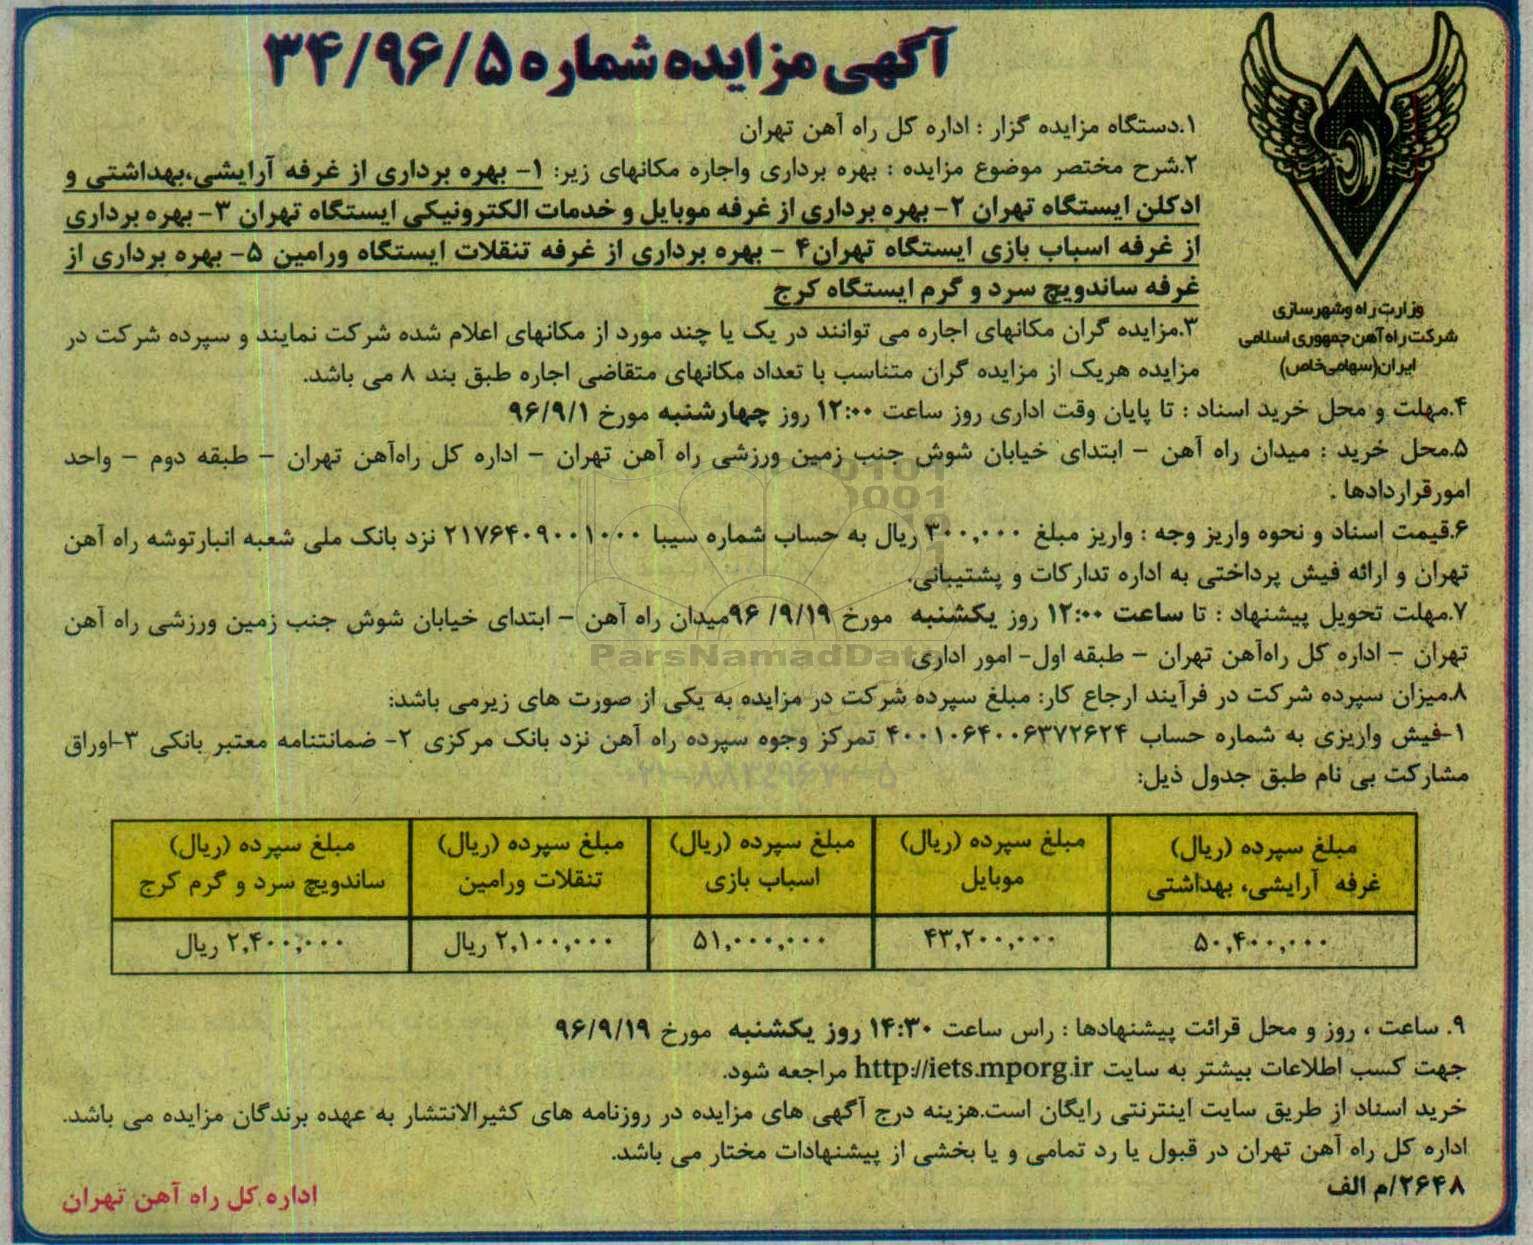 آگهی مزایده شماره ۳۴/۹۶/۵
وزارت راه وشهرسازی
شرکت راه آهن جمهوری اسلامی
ایران(سهامی خاص)
۱.دستگاه مزایده گزار : اداره کل راه آهن تهران
۲.شرح مختصر موضوع مزایده : بهره برداری واجاره مکانهای زیر: ۱- بهره برداری از غرفه آرایشی،بهداشتی و
ادکلن ایستگاه تهران ۲- بهره برداری از غرفه موبایل و خدمات الکترونیکی ایستگاه تهران ۳- بهره برداری
از غرفه اسباب بازی ایستگاه تهران۴ - بهره برداری از غرفه تنقلات ایستگاه ورامین ۵- بهره برداری از
غرفه ساندویچ سرد و گرم ایستگاه کرج
۳.مزایده گران مکانهای اجاره می توانند در یک یا چند مورد از مکانهای اعلام شده شرکت نمایند و سپرده شرکت در
مزایده هریک از مزایده گران متناسب با تعداد مکانهای متقاضی اجاره طبق بند ۸ می باشد.
۴.مهلت و محل خرید اسناد : تا پایان وقت اداری روز ساعت ۱۲:۰۰ روز چهارشنبه مورخ ۹۶/۹/۱
۵.محل خرید : میدان راه آهن – ابتدای خیابان شوش جنب زمین ورزشی راه آهن تهران – اداره کل راه‌آهن تهران – طبقه دوم – واحد
امورقراردادها .
۶.قیمت اسناد و نحوه واریز وجه : واریز مبلغ ۳۰۰,۰۰۰ ریال به حساب شماره سیبا ۲۱۷۶۴۰۹۰۰۱۰۰۰ نزد بانک ملی شعبه انبارتوشه راه آهن
تهران و ارائه فیش پرداختی به اداره تدارکات و پشتیبانی.
۷.مهلت تحویل پیشنهاد : تا ساعت ۱۲:۰۰ روز یکشنبه مورخ ۹۶/۹/۱۹میدان راه آهن – ابتدای خیابان شوش جنب زمین ورزشی راه آهن
تهران – اداره کل راه‌آهن تهران – طبقه اول- امور اداری
ParsNamadData
۸.میزان سپرده شرکت در فرآیند ارجاع کار: مبلغ سپرده شرکت در مزایده به یکی از صورت های زیرمی باشد:
۱-فیش واریزی به شماره حساب ۴۰۰۱۰۶۴۰۰۶۳۷۲۶۲۴ تمرکز وجوه سپرده راه آهن نزد بانک مرکزی ۲- ضمانتنامه معتبر بانکی ۳-اوراق
مشارکت بی نام طبق جدول ذیل:
مبلغ سپرده (ریال) غرفه آرایشی، بهداشتی | مبلغ سپرده (ریال) موبایل | مبلغ سپرده (ریال) اسباب بازی | مبلغ سپرده (ریال) تنقلات ورامین | مبلغ سپرده (ریال) ساندویچ سرد و گرم کرج
۵۰,۴۰۰,۰۰۰ | ۴۳,۲۰۰,۰۰۰ | ۵۱,۰۰۰,۰۰۰ | ۲,۱۰۰,۰۰۰ ریال | ۲,۴۰۰,۰۰۰ ریال
۹. ساعت ، روز و محل قرائت پیشنهادها : راس ساعت ۱۴:۳۰ روز یکشنبه مورخ ۹۶/۹/۱۹
جهت کسب اطلاعات بیشتر به سایت http://iets.mporg.ir مراجعه شود.
خرید اسناد از طریق سایت اینترنتی رایگان است.هزینه درج آگهی های مزایده در روزنامه های کثیرالانتشار به عهده برندگان مزایده می باشد.
اداره کل راه آهن تهران در قبول یا رد تمامی و یا بخشی از پیشنهادات مختار می باشد.
۲۶۴۸/م الف
اداره کل راه آهن تهران